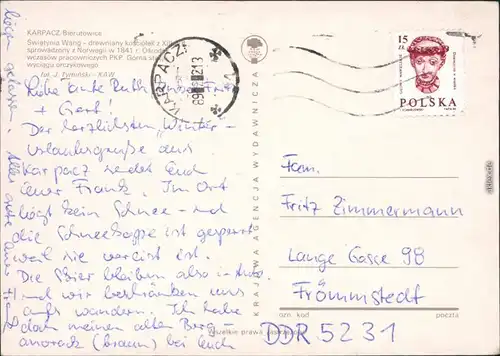 KARPACZ Bierutowice
Świątynia Wang – drewniany kościółek z XII
sprowadzony z Norwegii w 1841 r. Ośrodek
wczasów pracowniczych PKP. Górna st
wyciągu orczykowego
fot. J. Tymiński - KAW
KARPACZ 1
89
Liebe Tante Ruth, Fritz
+ Gert!
Die herzlichsten Winter-
urlaubsgrüße aus
Karpacz sendet Euch
Euer Frank. Im Ort
liegt kein Schnee und
die Schneekoppe ist gesperrt
weil sie vereist ist.
Die Skier bleiben also im
und wir beschränken uns
aufs wandern. Ich habe
doch meinen alten Berg-
anorack (braun) bei Euch
liegen gelassen. Alles Gute Euer
KRAJOWA AGENCJA WYDAWNICZA
15 ZŁ
POLSKA
Fam.
Fritz Zimmermann
Lange Gasse 98
Frömmstedt
ozn. kod poczta
DDR 5231
Wszelkie prawa zastrzeżone